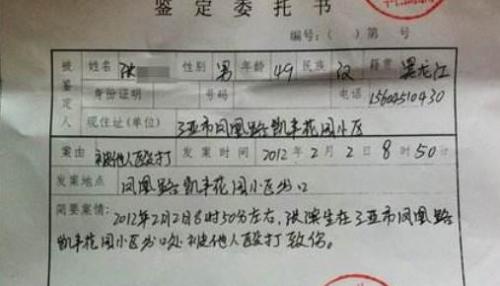 鉴定委托书
编号：（ ）第 号
被鉴定人 姓名 洪 性别 男 年龄 49 民族 汉 籍贯 黑龙江
身份证明 号码 电话 15604510430
现住址(单位) 三亚市凤凰路凯丰花园小区
案由 被他人殴打 发案时间 2012年2月2日8时50分
发案地点 凤凰路凯丰花园小区出口
简要案情：2012年2月2日8时50分左右，洪滨生在三亚市凤凰路
凯丰花园小区出口处被他人殴打致伤。